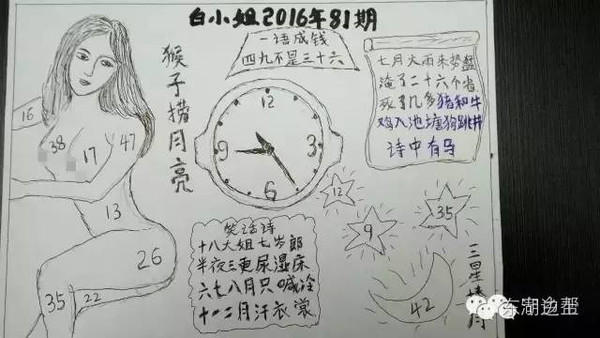 白小姐2016年81期
一语成钱
四九不是三十六
七月大雨来势猛
淹了二十六个省
死了几多猪和牛
鸡入池塘狗跳井
诗中有马
猴子捞月亮
12
9
3
6
16
38
17
47
13
26
35
22
笑话诗
十八大姐七岁郎
半夜三更尿湿床
六七八月只喊冷
十一二月汗衣裳
12
9
35
42
三星
月